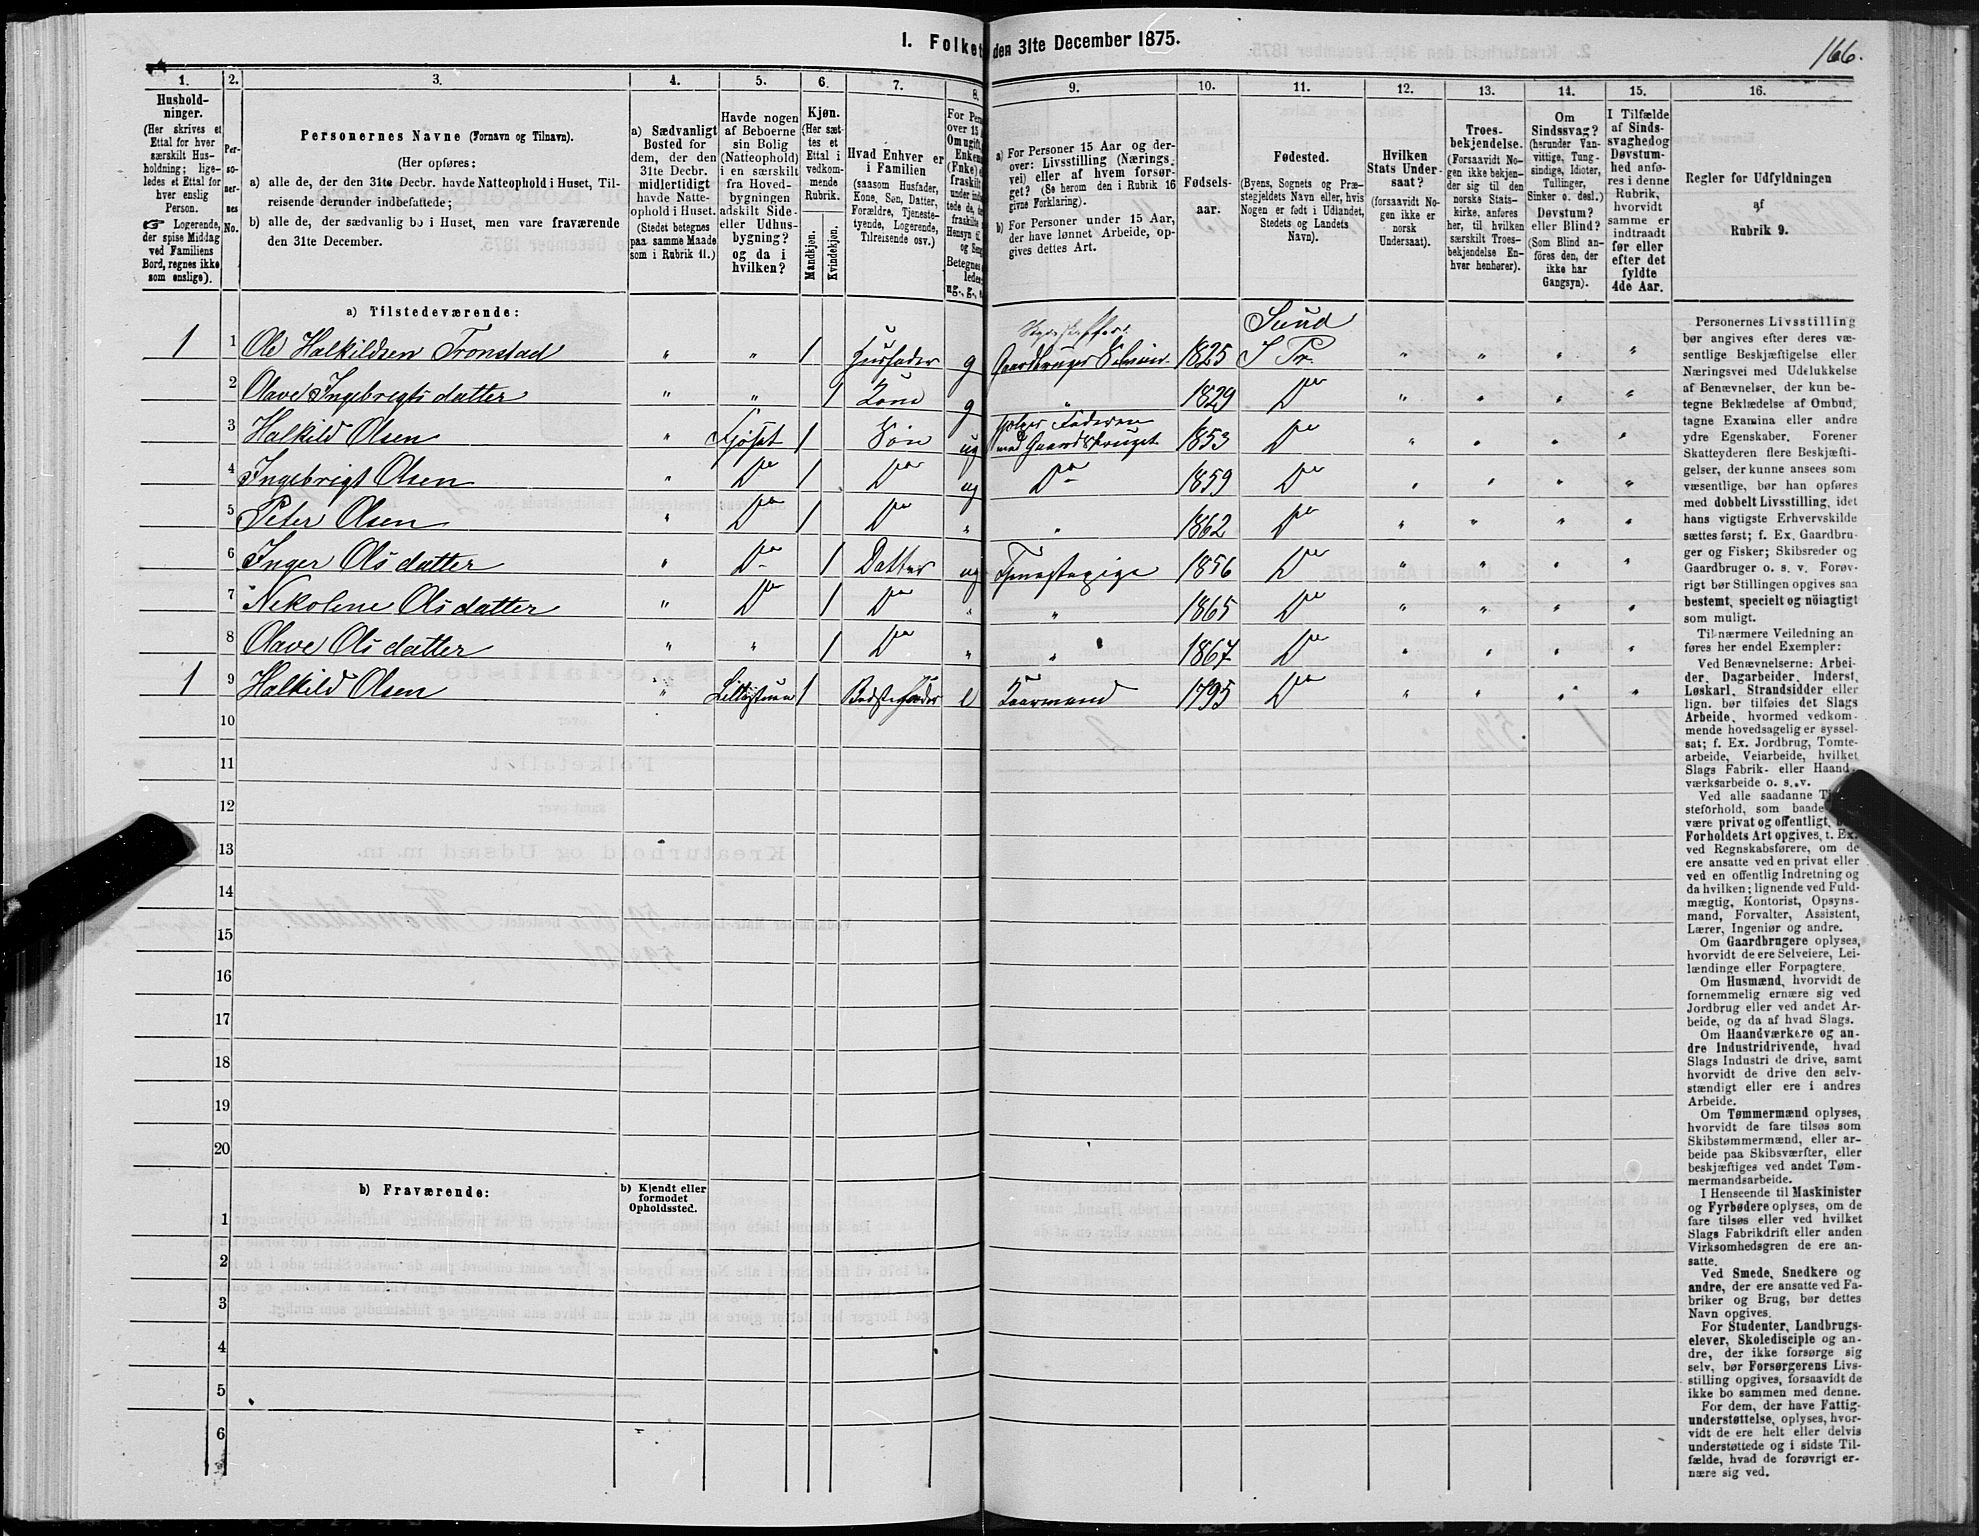 1. Folket den 31te December 1875.
166.
1.
2.
3.
4.
5.
6.
7.
8.
9.
10.
11.
12.
13.
14.
15.
16.
Hushold-
ninger.
(Her skrives et
Ettal for hver
særskilt Hus-
holdning; lige-
ledes et Ettal for
hver enslig
Person.
☞ Logerende,
der spise Middag
ved Familiens
Bord, regnes ikke
som enslige).
Per-
so-
ner-
nes
No.
Personernes Navne (Fornavn og Tilnavn).
(Her opføres:
a) alle de, der den 31te Decbr. havde Natteophold i Huset, Til-
reisende derunder indbefattede;
b) alle de, der sædvanlig bo i Huset, men vare fraværende
den 31te December.
a) Sædvanligt
Bosted for
dem, der den
31te Decbr.
midlertidigt
havde Natte-
ophold i Huset.
(Stedet betegnes
paa samme Maade
som i Rubrik 11.)
Havde nogen
af Beboerne
sin Bolig
(Natteophold)
i en særskilt
fra Hoved-
bygningen
adskilt Side-
eller Udhus-
bygning?
og da i
hvilken?
Kjøn.
(Her sæt-
tes et
Ettal i
vedkom-
mende
Rubrik.
Mandkjøn.
Kvindekjøn.
Hvad Enhver er
i Familien
(saasom Husfader,
Kone, Søn, Datter,
Forældre, Tjeneste-
tyende, Logerende,
Tilreisende osv.)
For Per
over 15 A
Om ugift,
Enkem
(Enke) e
fraskilt
a) For Personer 15 Aar og der-
over: Livsstilling (Nærings-
vei) eller af hvem forsør-
get? (Se herom den i Rubrik 16
givne Forklaring).
b) For Personer under 15 Aar,
der have lønnet Arbeide, op-
gives dettes Art.
Fødsels-
aar.
Fødested.
(Byens, Sognets og Præ-
stegjeldets Navn eller, hvis
Nogen er født i Udlandet,
Stedets og Landets
Navn).
Hvilken
Stats Under-
saat?
(forsaavidt No-
gen ikke er
norsk
Undersaat).
Troes-
bekjendelse.
(Forsaavidt No-
gen ikke bekjen-
der sig til den
norske Stats-
kirke, anføres
her, til hvilken
særskilt Troes-
bekjendelse En-
hver henhører).
Om
Sindssvag?
(herunder Van-
vittige, Tung-
sindige, Idioter,
Tullinger,
Sinker o. desl.)
Døvstum?
eller Blind?
(Som Blind an-
føres den, der
ikke har
Gangsyn).
I Tilfælde
af Sinds-
svaghed og
Døvstum-
hed anfø-
res i denne
Rubrik,
hvorvidt
samme er
indtraadt
før eller
efter det
fyldte
4de Aar.
Regler for Udfyldningen
af
Rubrik 9.
a) Tilstedeværende:
1 1 Ole Halkildsen Tronstad " " 1 Husfader g Gaardbruger Selveier 1825 Sund S Pr. " " " "
2 Olave Ingebrigtsdatter " " 1 Kone g " 1829 Do " " " "
3 Halkild Olsen " Fjøset 1 Søn ug hjelper Faderen med Gaardsbruget 1853 Do " " " "
4 Ingebrigt Olsen " Do 1 Do ug Do 1859 Do " " " "
5 Peter Olsen " Do 1 Do " " 1862 Do " " " "
6 Inger Olsdatter " Do 1 Datter ug Tjenestepige 1856 Do " " " "
7 Nikoline Olsdatter " Do 1 Do " " 1865 Do " " " "
8 Olave Olsdatter " " 1 Do " " 1867 Do " " " "
1 9 Halkild Olsen " Lillestuen 1 Bedstefader e Kaarmand 1795 Do " " " "
10
11
12
13
14
15
16
17
18
19
20
b) Fraværende:
b) Kjendt eller
formodet
Opholdssted.
1
2
3
4
5
6
Personernes Livsstilling
bør angives efter deres væ-
sentlige Beskjæftigelse eller
Næringsvei med Udelukkelse
af Benævnelser, der kun be-
tegne Beklædelse af Ombud,
tagne Examina eller andre
ydre Egenskaber. Forener
Skatteyderen flere Beskjæfti-
gelser, der kunne ansees som
væsentlige, bør han opføres
med dobbelt Livsstilling, idet
hans vigtigste Erhvervskilde
sættes først; f. Ex. Gaardbru-
ger og Fisker; Skibsreder og
Gaardbruger o. s. v. Forøv-
rigt bør Stillingen opgives saa
bestemt, specielt og nöiagtigt
som muligt.
Til nærmere Veiledning an-
føres her endel Exempler:
Ved Benævnelserne: Arbei-
der, Dagarbeider, Inderst,
Løskarl, Strandsidder eller
lign. bør tilføies det Slags
Arbeide, hvormed vedkom-
mende hovedsagelig er syssel-
sat; f. Ex. Jordbrug, Tomte-
arbeide, Veiarbeide, hvilket
Slags Fabrik- eller Haand-
værksarbeide o. s. v.
Ved alle saadanne
steforhold, som baade
være privat og offentlig,
Forholdets Art opgives, t. Ex.
ved Regnskabsførere, om de
ere ansatte ved en privat eller
ved en offentlig Indretning og
da hvilken; lignende ved Fuld-
mægtig, Kontorist, Opsyns-
mand, Forvalter, Assistent,
Lærer, Ingeniør og andre.
Om Gaardbrugere oplyses,
hvorvidt de ere Selveiere, Lei-
lændinge eller Forpagtere.
Om Husmænd, hvorvidt de
fornemmelig ernære sig ved
Jordbrug eller ved andet Ar-
beide, og da af hvad Slags.
Om Haandværkere og an-
dre Industridrivende, hvad
Slags Industri de drive, samt
hvorvidt de drive den selv-
stændigt eller ere i andres
Arbeide.
Om Tømmermænd oplyses,
hvorvidt de fare tilsøs som
Skibstømmermænd, eller ar-
beide paa Skibsværfter, eller
beskjæftiges ved andet Tøm-
mermandsarbeide.
I Henseende til Maskinister
og Fyrbødere oplyses, om de
fare tilsøs eller ved hvilket
Slags Fabrikdrift eller anden
Virksomhedsgren de ere an-
satte.
Ved Smede, Snedkere og
andre, der ere ansatte ved Fa-
briker og Brug, bør dettes
Navn opgives.
For Studenter, Landbrugs-
elever, Skoledisciple og an-
dre, der ikke forsørge sig
selv, bør Forsørgerens Livs-
stilling opgives, forsaavidt de
ikke bo sammen med denne.
For dem, der have Fattig-
understøttelse, oplyses, hvor-
vidt de ere helt eller delvis
understøttede og i sidste Til-
fælde, hvad de forøvrigt er-
nære sig ved.